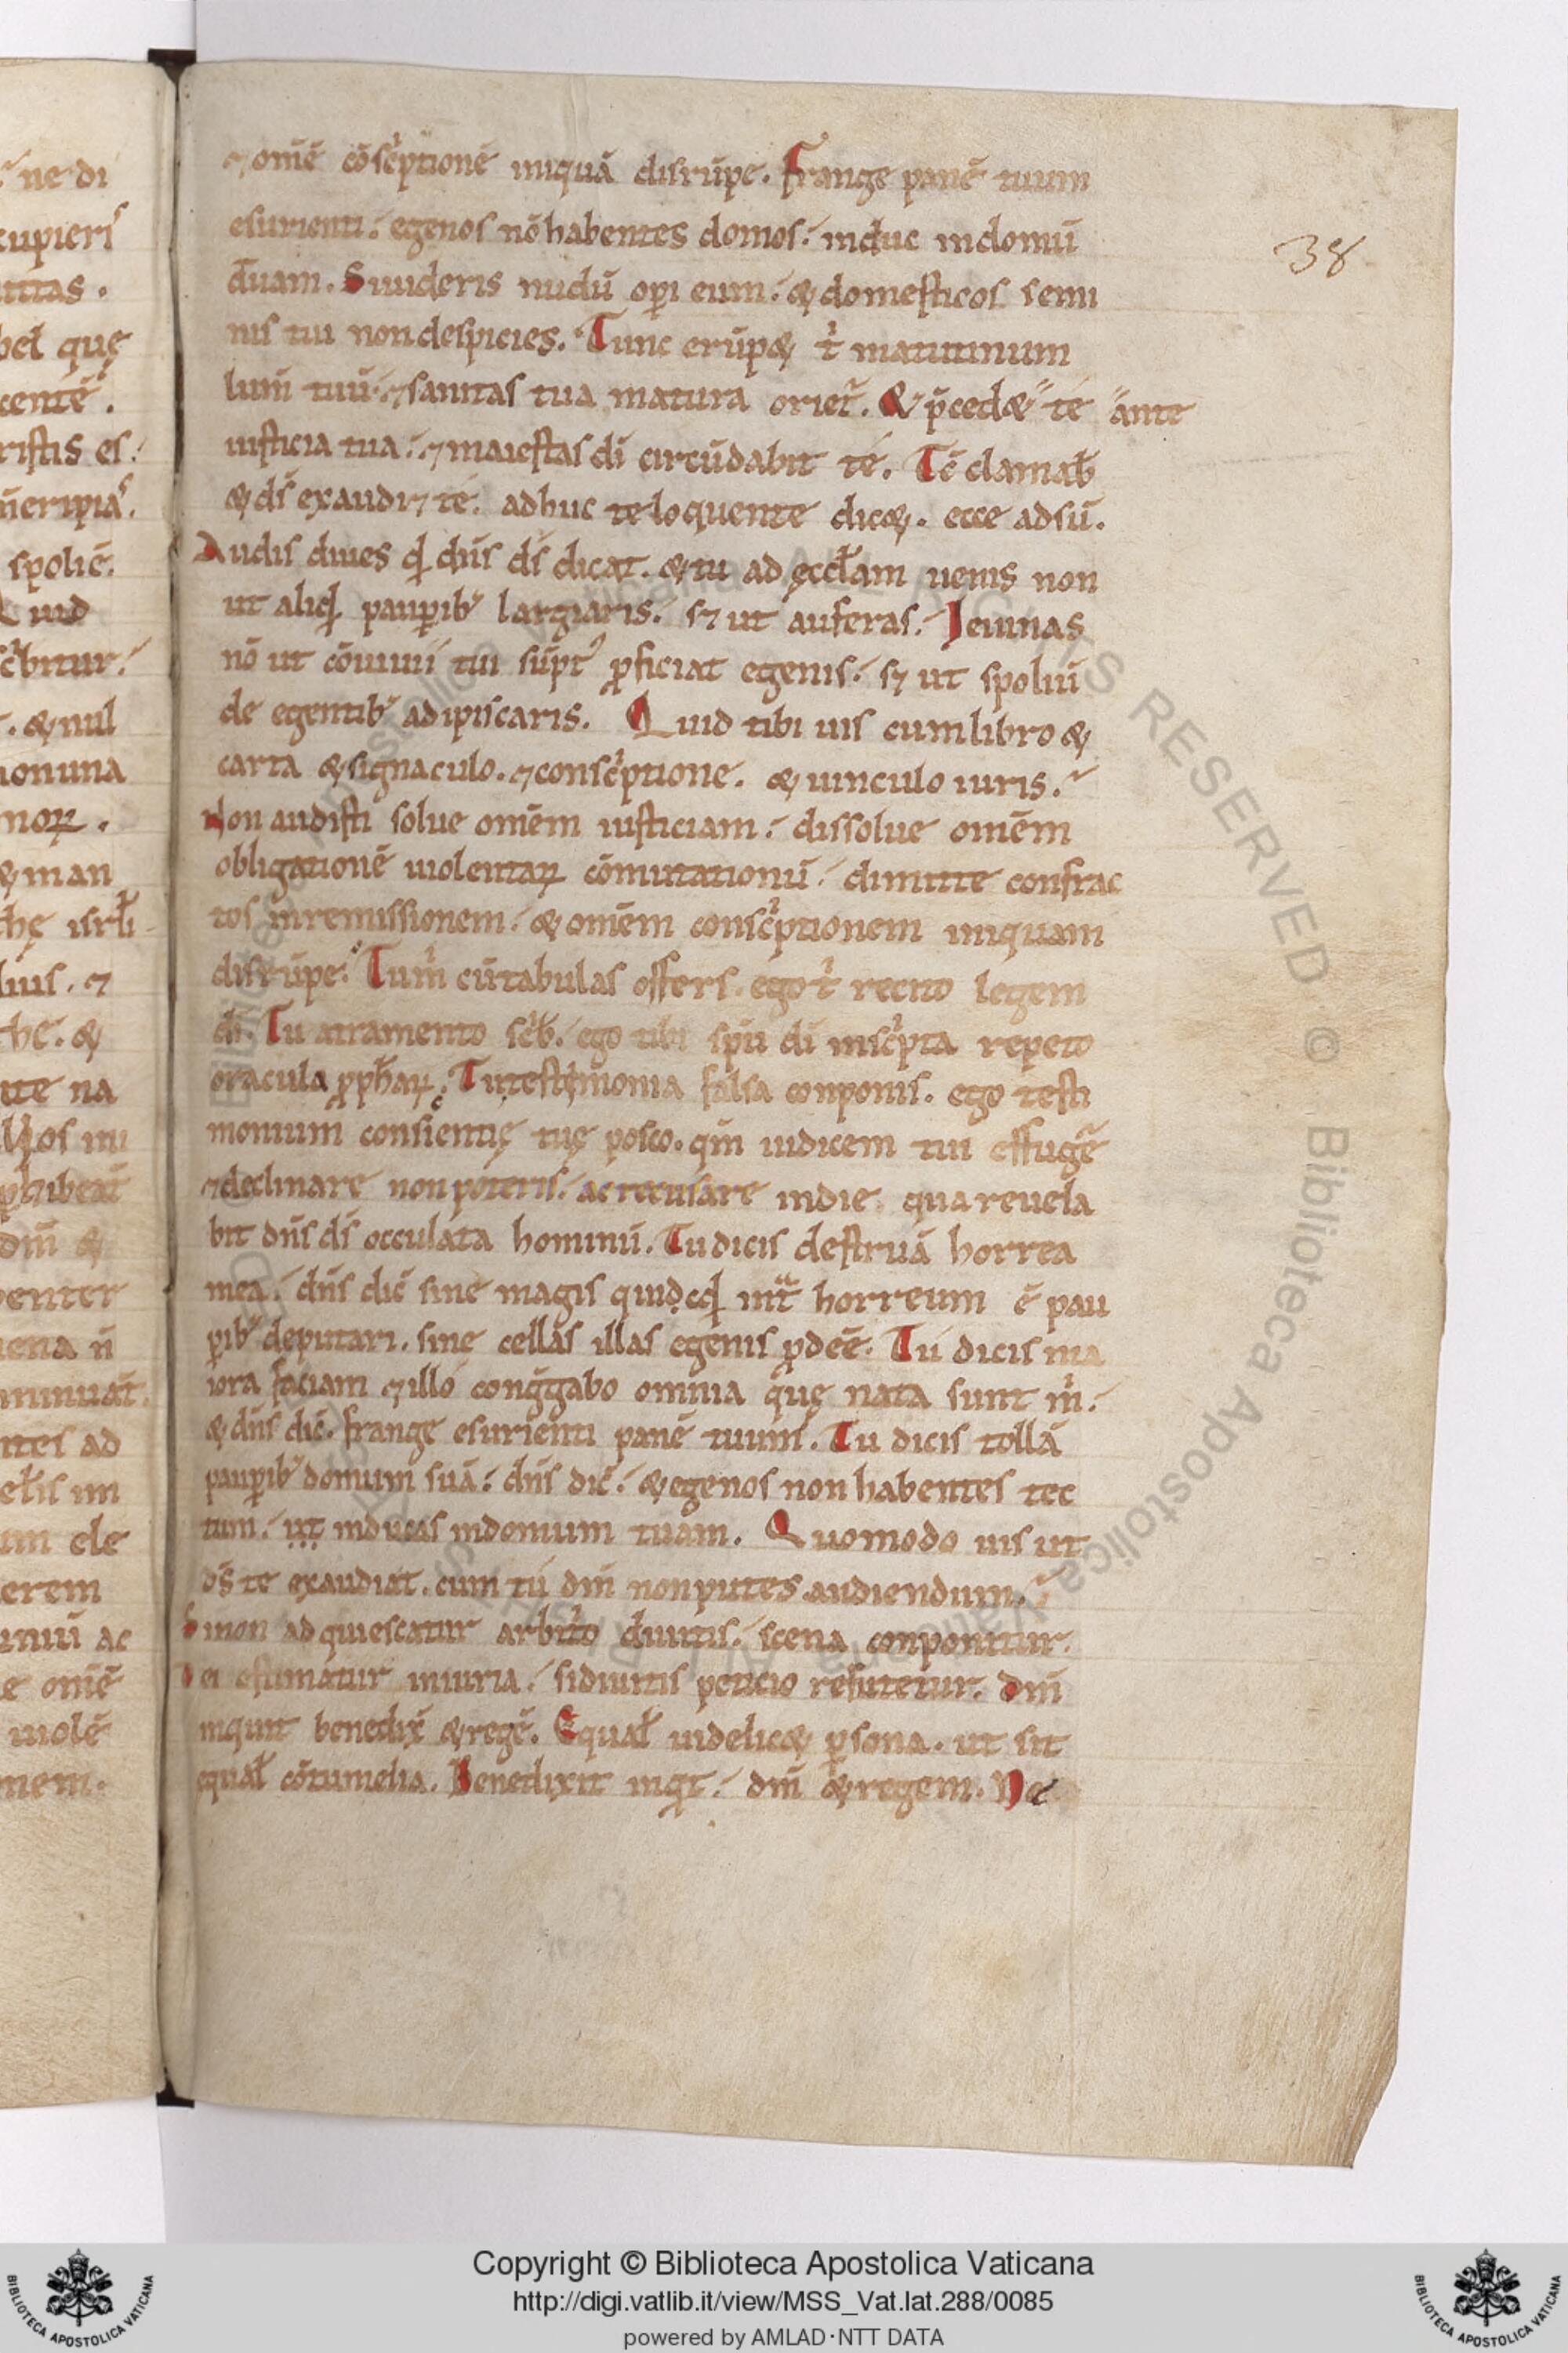 ne di
cupieris
uitas.
bel quę
centē.
ristis es.
ñ eripias.
spoliē.
Quid
sc̄bitur.
. & nul
non una
noꝝ.
& man
thę isrł
lius. ⁊
the. &
tte na
llos mi
phibeat̄
dm̄ &
penter
uena n̄
minuat̄.
ntes ad
um ele
erem
ac
e om̄ē
uiolē
nem.
⁊ om̄ē cōsc̓ptionē iniquā disrūpe. Frange panē tuum
38
esurienti. egenos nō habentes domos. induc in domū
tuam. Si uideris nudū op̲i eum. & domesticos semi
nis tui non despicies. Tunc erūp& t̓ matutinum
lum̄ tuū. ⁊ sanitas tua matura oriet᷑. & p̄ced& te ante
iusticia tua. ⁊ maiestas dī circūdabit te. Tc̄ clamab̄
& dī exaudi⁊ te. adhuc te loquente dic&. ecce adsū.
Audis diues qđ dn̄s dī dicat. & tu ad ęccłam uenis non
ut aliqđ paup̲ib᷒ largiaris. s⁊ ut auferas. Ieiunas
nō ut cōuiuii tui sūpt᷒ ꝓficiat egenis. s⁊ ut spoliū
de egentib᷒ adipiscaris. Quid tibi uis cum libro &
carta & signaculo. ⁊ consc̓ptione. & uinculo iuris.
Non audisti solue om̄em iusticiam. dissolue om̄em
obligationē uiolentaꝝ cōmutationū. dimitte confrac
tos in remissionem. & om̄em consc̓ptionem iniquam
disrūpe. Tu m̓ cū tabulas offers. ego t̓ recito legem
dī. Tu atramento sc̓b̄. ego tibi sp̄u dī insc̓pta repeto
oracula ꝓph̄aꝝ. Tu testimonia falsa conponis. ego testi
monium consientię tuę posco. qm̄ iudicem tui effugē
⁊ declinare non poteris. ac recusare in die qua reuela
bit dn̄s dī occulata hominū. Tu dicis destruā horrea
mea. dn̄s dic̄ sine magis quidqđ int̄ horreum ē pau
p̲ib᷒ deputari. sine cellas illas egenis ꝓdeē. Tu dicis ma
iora faciam ⁊ illo cong̓gabo omnia quę nata sunt m̓.
& dn̄s dic̄. frange esurienti panē tuum. Tu dicis tollā
paup̲ib᷒ domum suā. dn̄s dic̄. & egenos non habentes tec
tum. ut inducas in domum tuam. Quomodo uis ut
dš te exaudiat. cum tu dm̄ non putes audiendum.
Si non adquiescatur arbit̓o diuitis. scena conponitur.
ei estimatur iniuria. si diuitis peticio refutetur. Dm̄
inquit benedix̄ & regē. Equał uidelic& p̲sona. ut sit
equał cōtumelia. Benedixit inq̓t. dm̄ & regem.
Copyright © Biblioteca Apostolica Vaticana
http://digi.vatlib.it/view/MSS_Vat.lat.288/0085
powered by AMLAD·NTT DATA
BIBLIOTECA APOSTOLICA VATICANA
BIBLIOTECA APOSTOLICA VATICANA